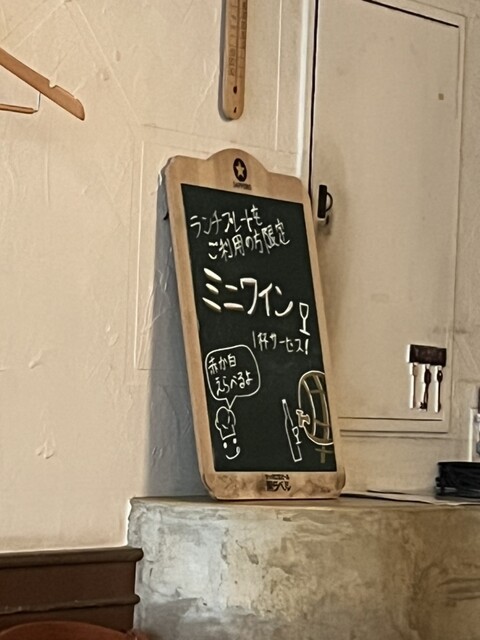 SAPPORO
ランチプレートを
ご利用の方限定
ミニワイン
1杯サービス!
赤か白
えらべるよ
黒ラベル